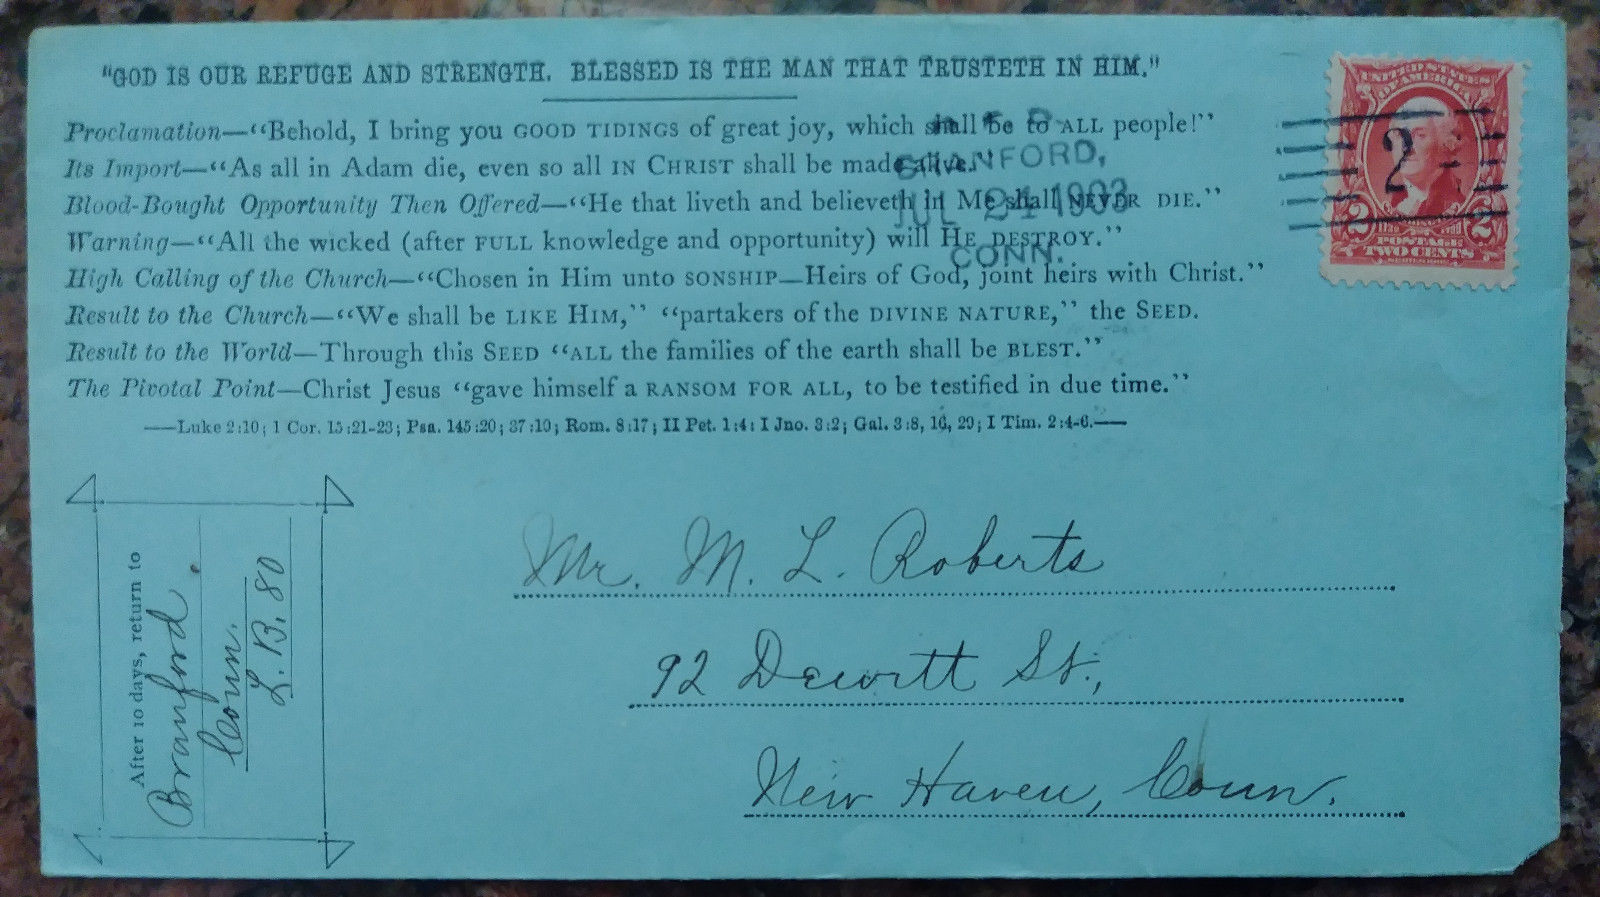 "GOD IS OUR REFUGE AND STRENGTH. BLESSED IS THE MAN THAT TRUSTETH IN HIM."
Proclamation—“Behold, I bring you GOOD TIDINGS of great joy, which shall be to ALL people!”
Its Import—“As all in Adam die, even so all IN CHRIST shall be made alive.”
Blood-Bought Opportunity Then Offered—“He that liveth and believeth in Me shall NEVER DIE.”
Warning—“All the wicked (after FULL knowledge and opportunity) will HE DESTROY.”
High Calling of the Church—“Chosen in Him unto SONSHIP—Heirs of God, joint heirs with Christ.”
Result to the Church—“We shall be LIKE HIM,” “partakers of the DIVINE NATURE,” the SEED.
Result to the World—Through this SEED “ALL the families of the earth shall be BLEST.”
The Pivotal Point—Christ Jesus “gave himself a RANSOM FOR ALL, to be testified in due time.”
—Luke 2:10; 1 Cor. 15:21-23; Psa. 145:20; 37:10; Rom. 8:17; II Pet. 1:4; I Jno. 3:2; Gal. 3:8, 16, 29; I Tim. 2:4-6.—
BRANFORD,
JUL 24 1903
CONN.
UNITED STATES
OF AMERICA
2
2 2
POSTAGE
TWO CENTS
After 10 days, return to
Branford
Conn.
L. B. 80
Mr. M. L. Roberts
92 Dewitt St.,
New Haven, Conn.